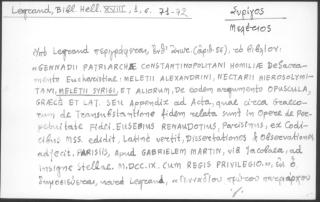 Legrand, Bibl. Hell. XVIII, 1, σ. 71-72
Συρίγος
Μελέτιος
Ὁ Legrand περιγράφεται, (ἀρ. 56), τὸ βιβλίον:
«GENNADII PATRIARCHÆ CONSTANTINOPOLITANI HOMILIÆ De Sacra-
mento Eucharistiæ: MELETII ALEXANDRINI, NECTARII HIEROSOLYMI-
TANI, MELETII SYRIGI, ET ALIORUM, De eodem argumento OPUSCULA,
GRÆCÈ ET LAT. Seu Appendix ad Acta, quæ circa Græco-
rum de Transubstantione fidem relata sunt in Opere de Per-
petuitate Fidei. EUSEBIUS RENAUDOTIUS, Parisinus, ex Codi-
cibus MSS. edidit, Latinè vertit, Dissertationes & Observationes
adjecit. PARISIIS, Apud GABRIELEM MARTIN, viâ Jacobæa, ad
insigne Stellæ. M.DCC.IX. CUM REGIS PRIVILEGIO.»,
δημοσιεύεται, κατὰ Legrand, «Γενναδίου πρώτου πατριάρχου